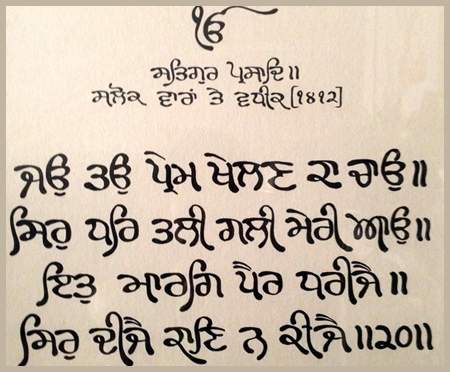 ੴ
ਸਤਿਗੁਰ ਪ੍ਰਸਾਦਿ॥
ਸਲੋਕ ਵਾਰਾਂ ਤੇ ਵਧੀਕ [੧੪੧੨]
ਜਉ ਤਉ ਪ੍ਰੇਮ ਖੇਲਣ ਕਾ ਚਾਉ॥
ਸਿਰੁ ਧਰਿ ਤਲੀ ਗਲੀ ਮੇਰੀ ਆਉ॥
ਇਤੁ ਮਾਰਗਿ ਪੈਰੁ ਧਰੀਜੈ॥
ਸਿਰੁ ਦੀਜੈ ਕਾਣਿ ਨ ਕੀਜੈ॥੨੦॥